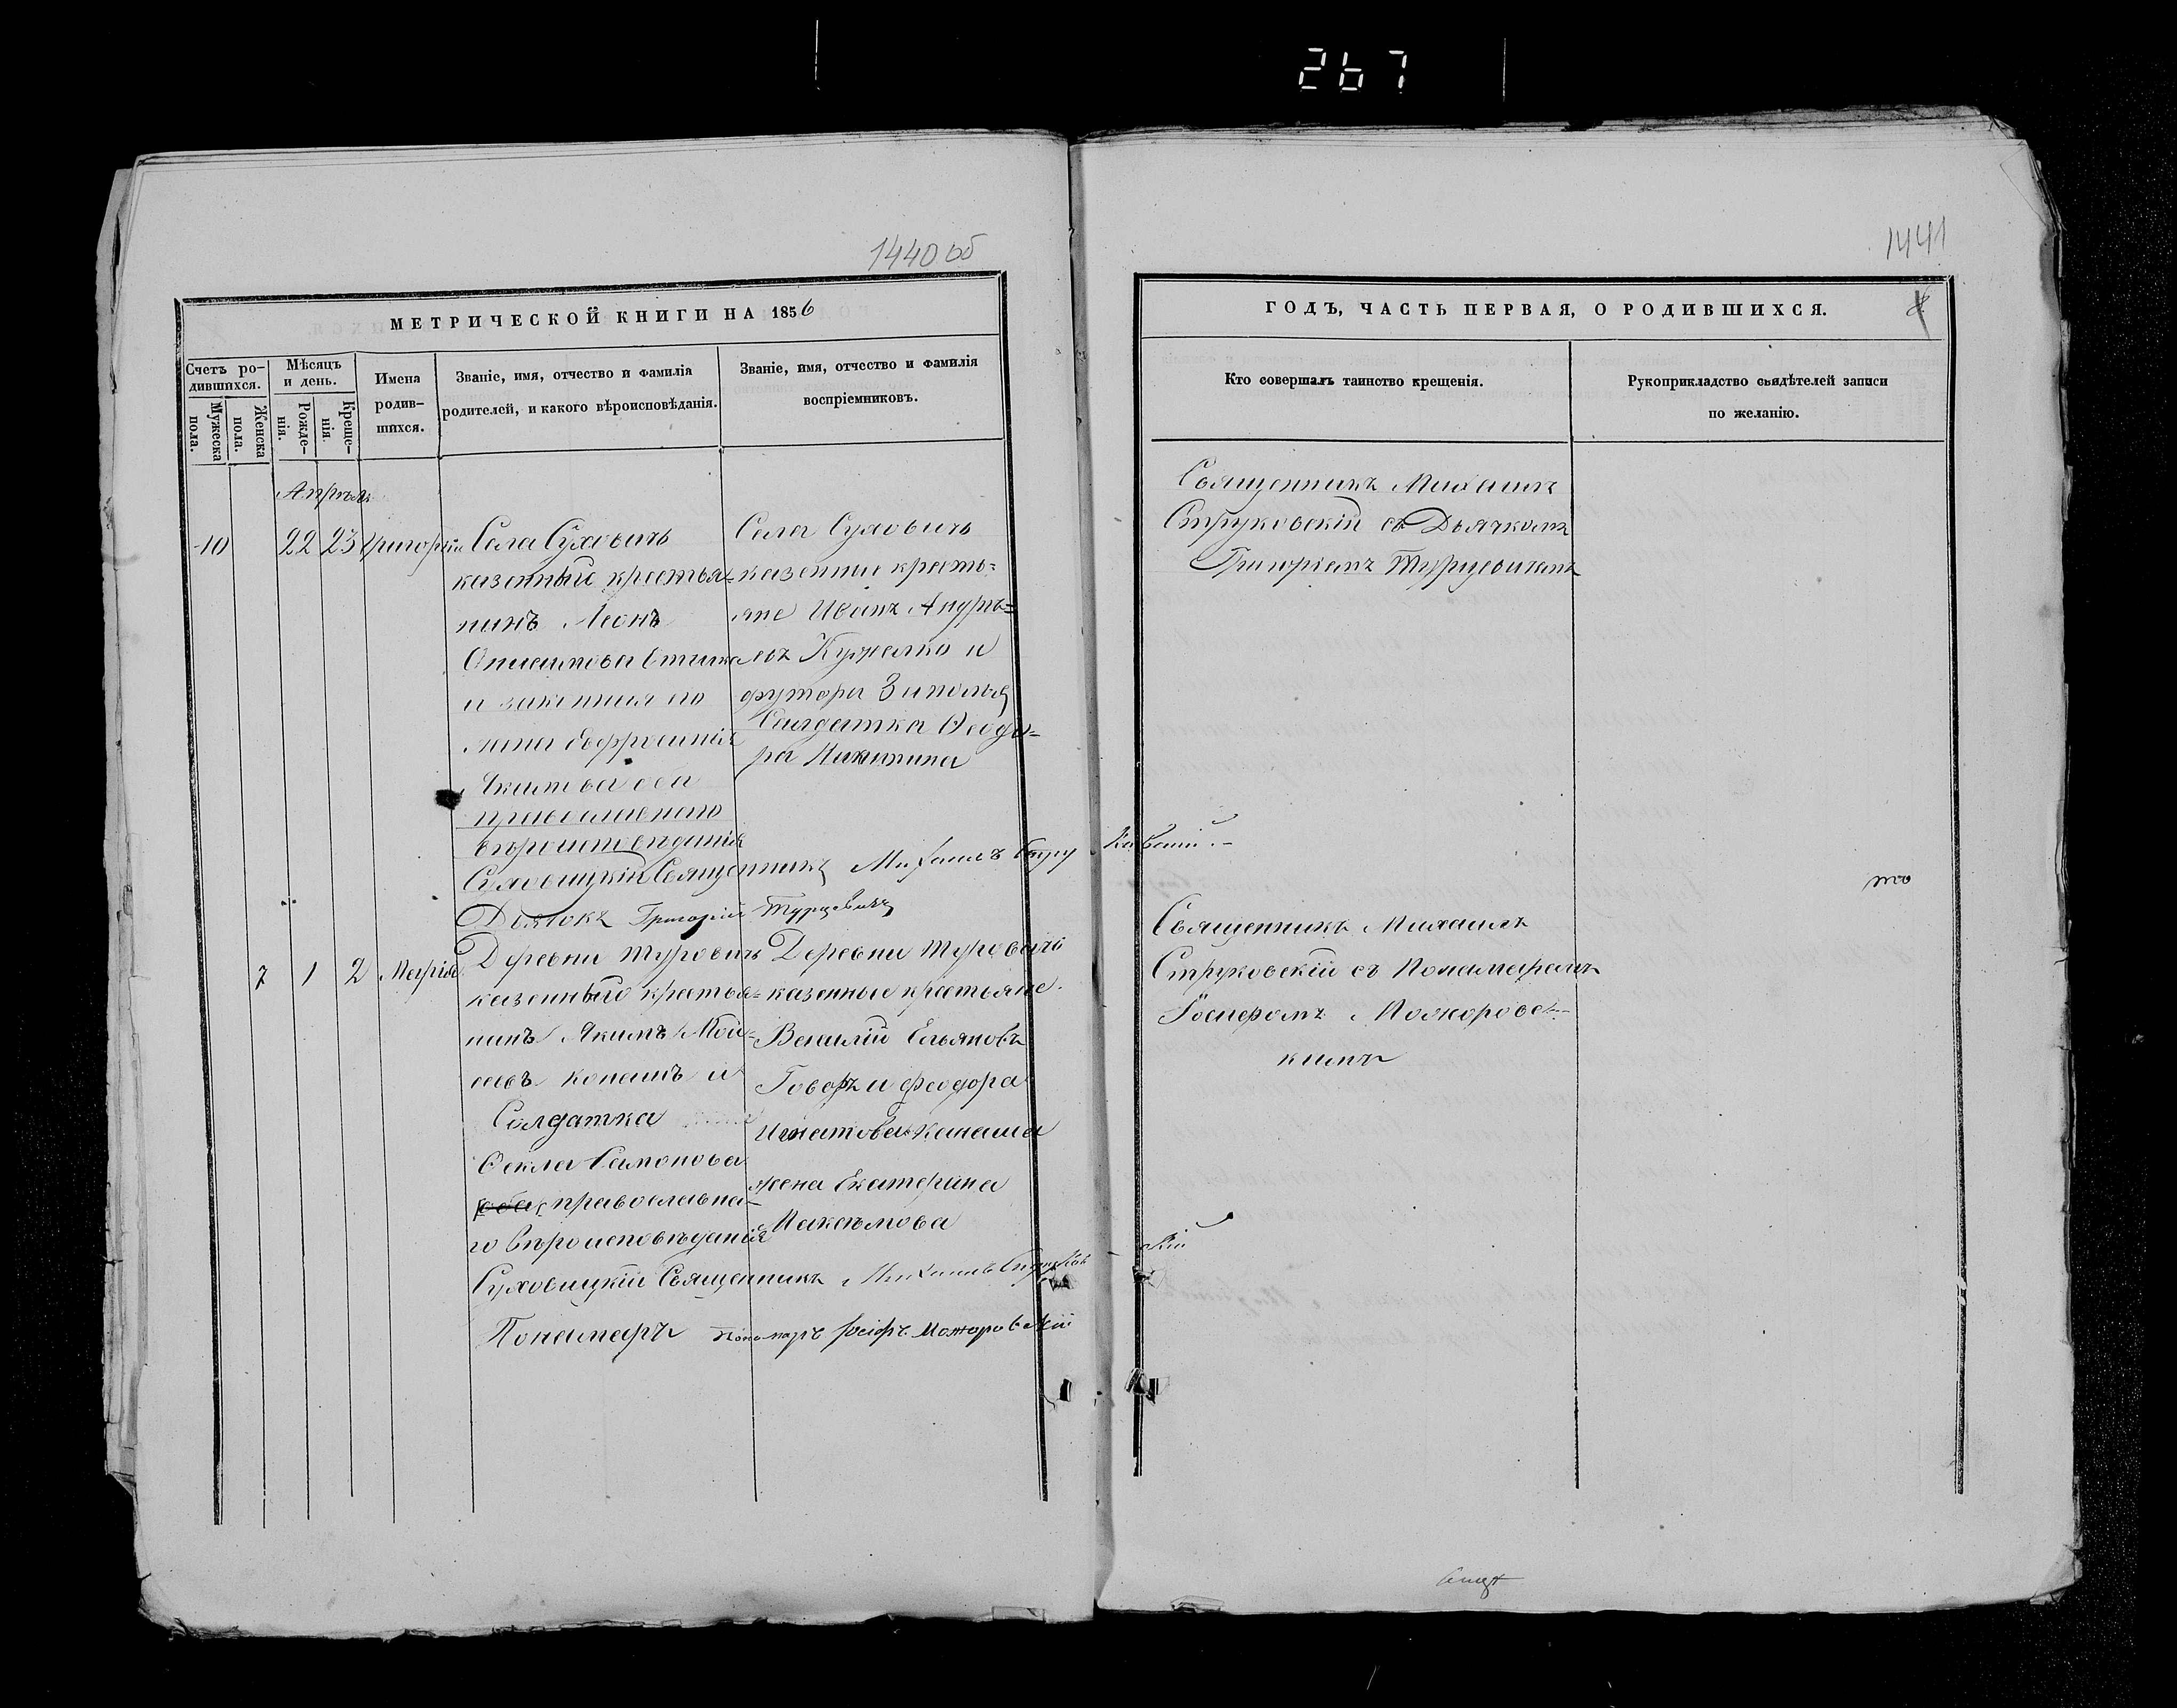 267
1440 об
МЕТРИЧЕСКОЙ КНИГИ НА 1856
Счетъ ро-
дившихся.
Мужеска
пола.
Женска
пола.
Мѣсяцъ
и день.
Рожде-
нія.
Креще-
нія.
Имена
родив-
шихся.
Званіе, имя, отчество и фамилія
родителей, и какого вѣроисповѣданія.
Званіе, имя, отчество и фамилія
воспріемниковъ.
Апрѣль
10 22 23 Григорій
Села Суховичъ
казенный крестья-
нинъ Леонъ
и законная его
жена Ефросинія
оба
православнаго
вѣроисповѣданія
Села Суховичъ
казенные кресть=
яне Иванъ Андрѣ=
евъ Кужелко и
футора
Салдатка Ѳеодо=
ра Никитина
Суховицкій Священникъ Михаилъ Струковскій.-
Дьячокъ Григорій Турцевичъ
7 1 2 Марія
Деревни Туровичъ
казенный крестья=
нинъ Якимъ Мой=
сеевъ Конашъ и
Солдатка
Ѳекла Самонова
оба православна-
го вѣроисповѣданія
Деревни Туровичъ
казенные крестьяне
Василій Емьяновъ
Говоръ и Феодора
Игнатова Канаша
жена Екатерина
Максимова
Суховицкій Священникъ Михаилъ Струковскій
Понамаръ Пономаръ Іосифъ Можаровскій
1441
ГОДЪ, ЧАСТЬ ПЕРВАЯ, О РОДИВШИХСЯ.
8
Кто совершалъ таинство крещенія.
Рукоприкладство свидѣтелей записи
по желанію.
Священникъ Михаилъ
Струковскій съ Дьячкомъ
Григоріемъ Турцевичемъ
Священникъ Михаилъ
Струковскій съ Понамаремъ
Іосифомъ Можаровс-
кимъ